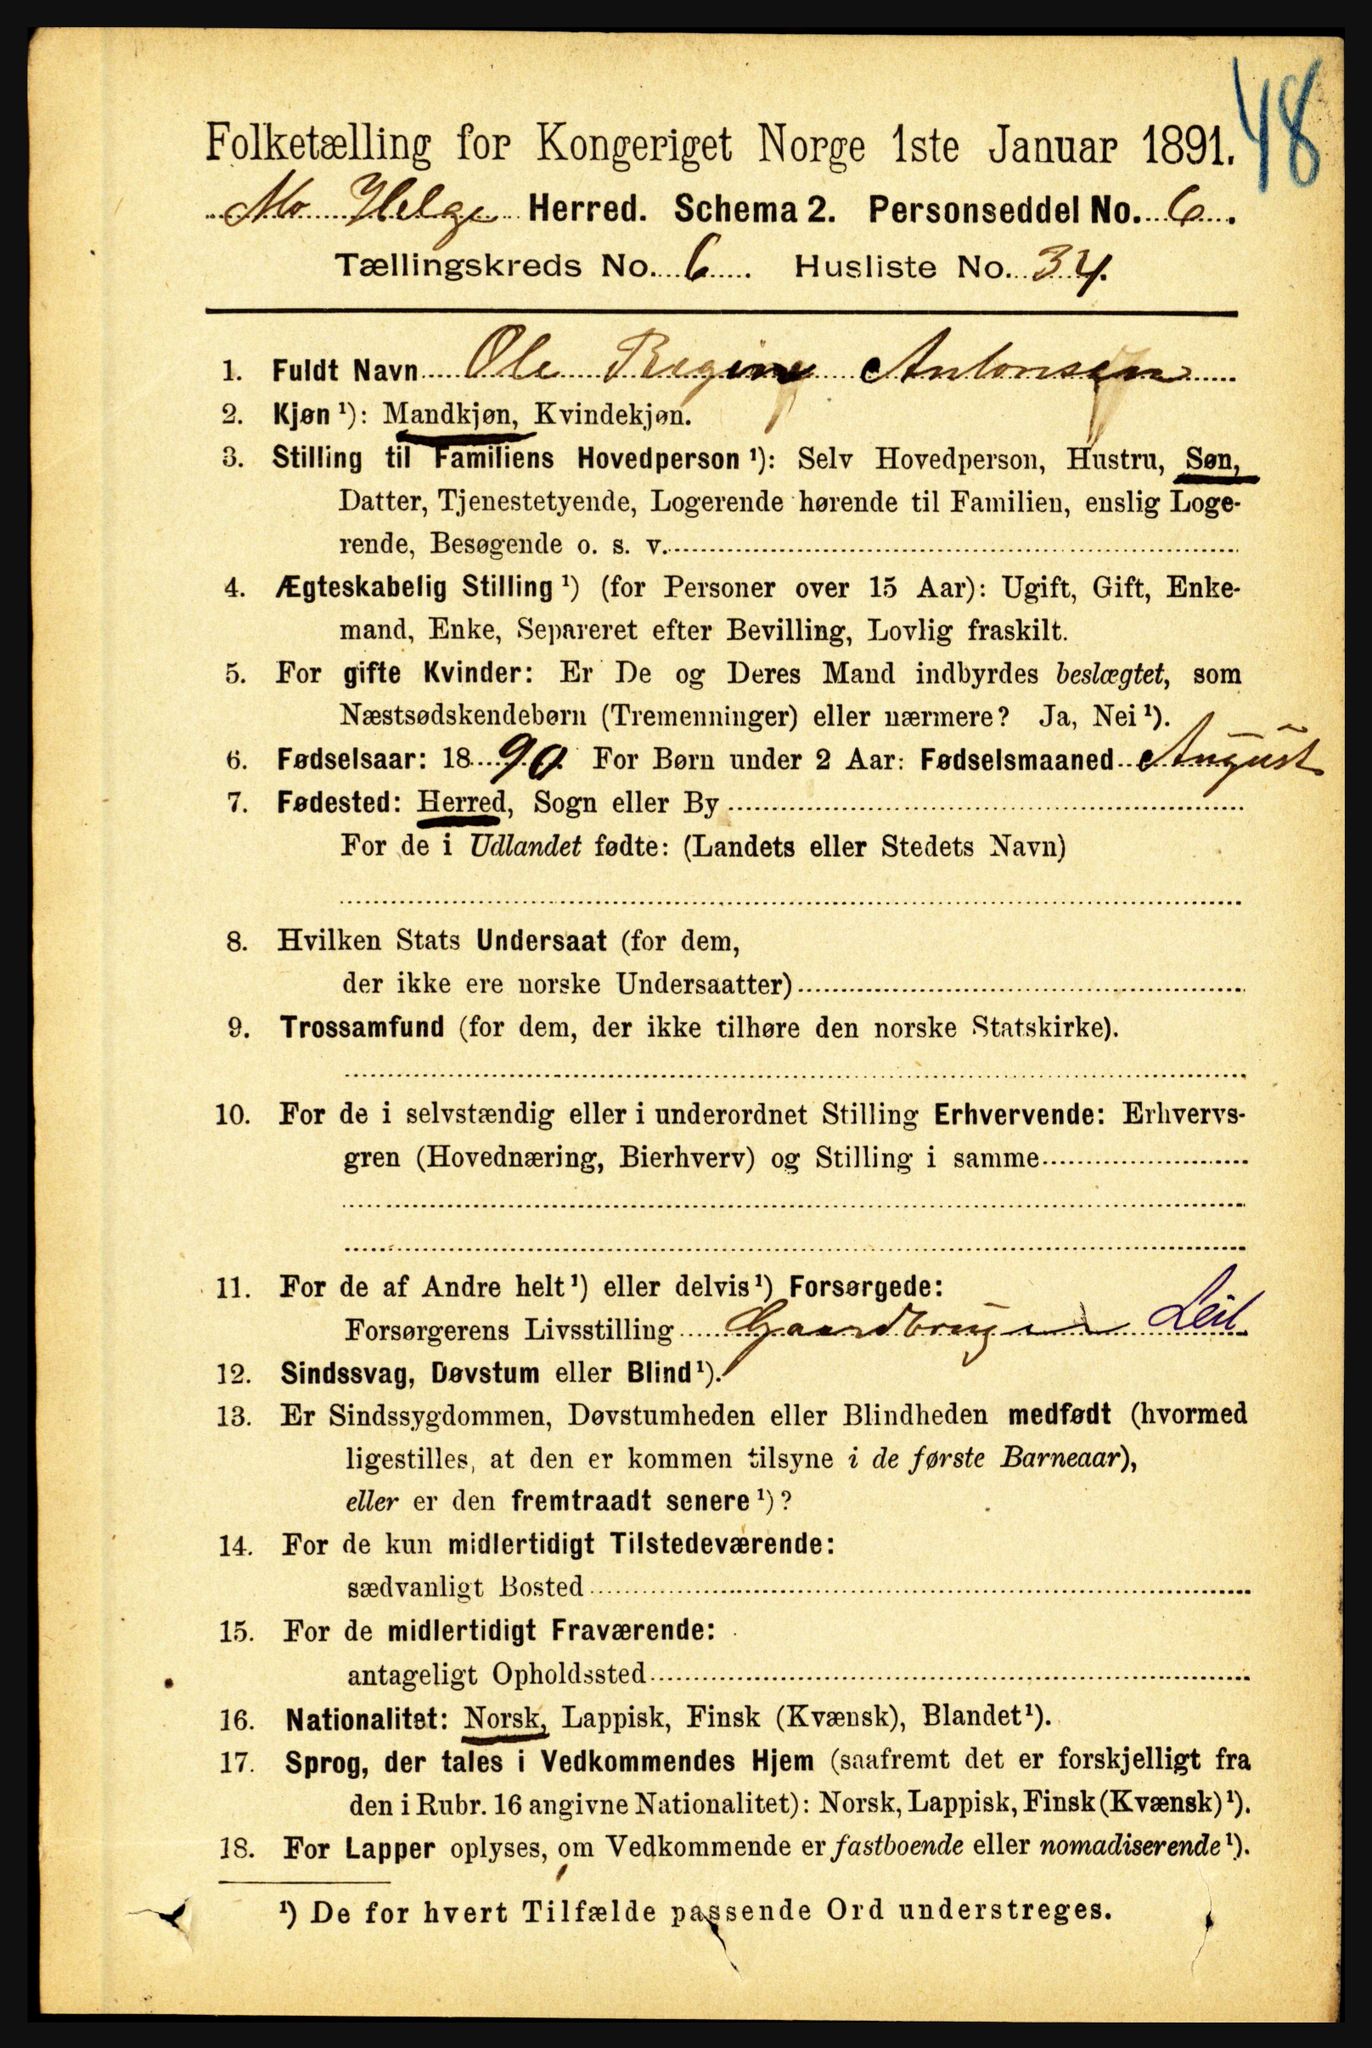 48
Folketælling for Kongeriget Norge 1ste Januar 1891.
Mo Helge Herred. Schema 2. Personseddel No. 6.
Tællingskreds No. 6. Husliste No. 34.
1. Fuldt Navn Ole Antonsen
2. Kjøn ¹): Mandkjøn, Kvindekjøn.
3. Stilling til Familiens Hovedperson ¹): Selv Hovedperson, Hustru, Søn,
Datter, Tjenestetyende, Logerende hørende til Familien, enslig Loge-
rende, Besøgende o. s. v.
4. Ægteskabelig Stilling ¹) (for Personer over 15 Aar): Ugift, Gift, Enke-
mand, Enke, Separeret efter Bevilling, Lovlig fraskilt.
5. For gifte Kvinder: Er De og Deres Mand indbyrdes beslægtet, som
Næstsødskendebørn (Tremenninger) eller nærmere? Ja, Nei ¹).
6. Fødselsaar: 1890 For Børn under 2 Aar: Fødselsmaaned August
7. Fødested: Herred, Sogn eller By
For de i Udlandet fødte: (Landets eller Stedets Navn)
8. Hvilken Stats Undersaat (for dem,
der ikke ere norske Undersaatter)
9. Trossamfund (for dem, der ikke tilhøre den norske Statskirke).
10. For de i selvstændig eller i underordnet Stilling Erhvervende: Erhvervs-
gren (Hovednæring, Bierhverv) og Stilling i samme
11. For de af Andre helt ¹) eller delvis ¹) Forsørgede:
Forsørgerens Livsstilling Gaardbruger Leil
12. Sindssvag, Døvstum eller Blind ¹).
13. Er Sindssygdommen, Døvstumheden eller Blindheden medfødt (hvormed
ligestilles, at den er kommen tilsyne i de første Barneaar),
eller er den fremtraadt senere ¹)?
14. For de kun midlertidigt Tilstedeværende:
sædvanligt Bosted
15. For de midlertidigt Fraværende:
antageligt Opholdssted
16. Nationalitet: Norsk, Lappisk, Finsk (Kvænsk), Blandet ¹).
17. Sprog, der tales i Vedkommendes Hjem (saafremt det er forskjelligt fra
den i Rubr. 16 angivne Nationalitet): Norsk, Lappisk, Finsk (Kvænsk) ¹).
18. For Lapper oplyses, om Vedkommende er fastboende eller nomadiserende ¹).
¹) De for hvert Tilfælde passende Ord understreges.